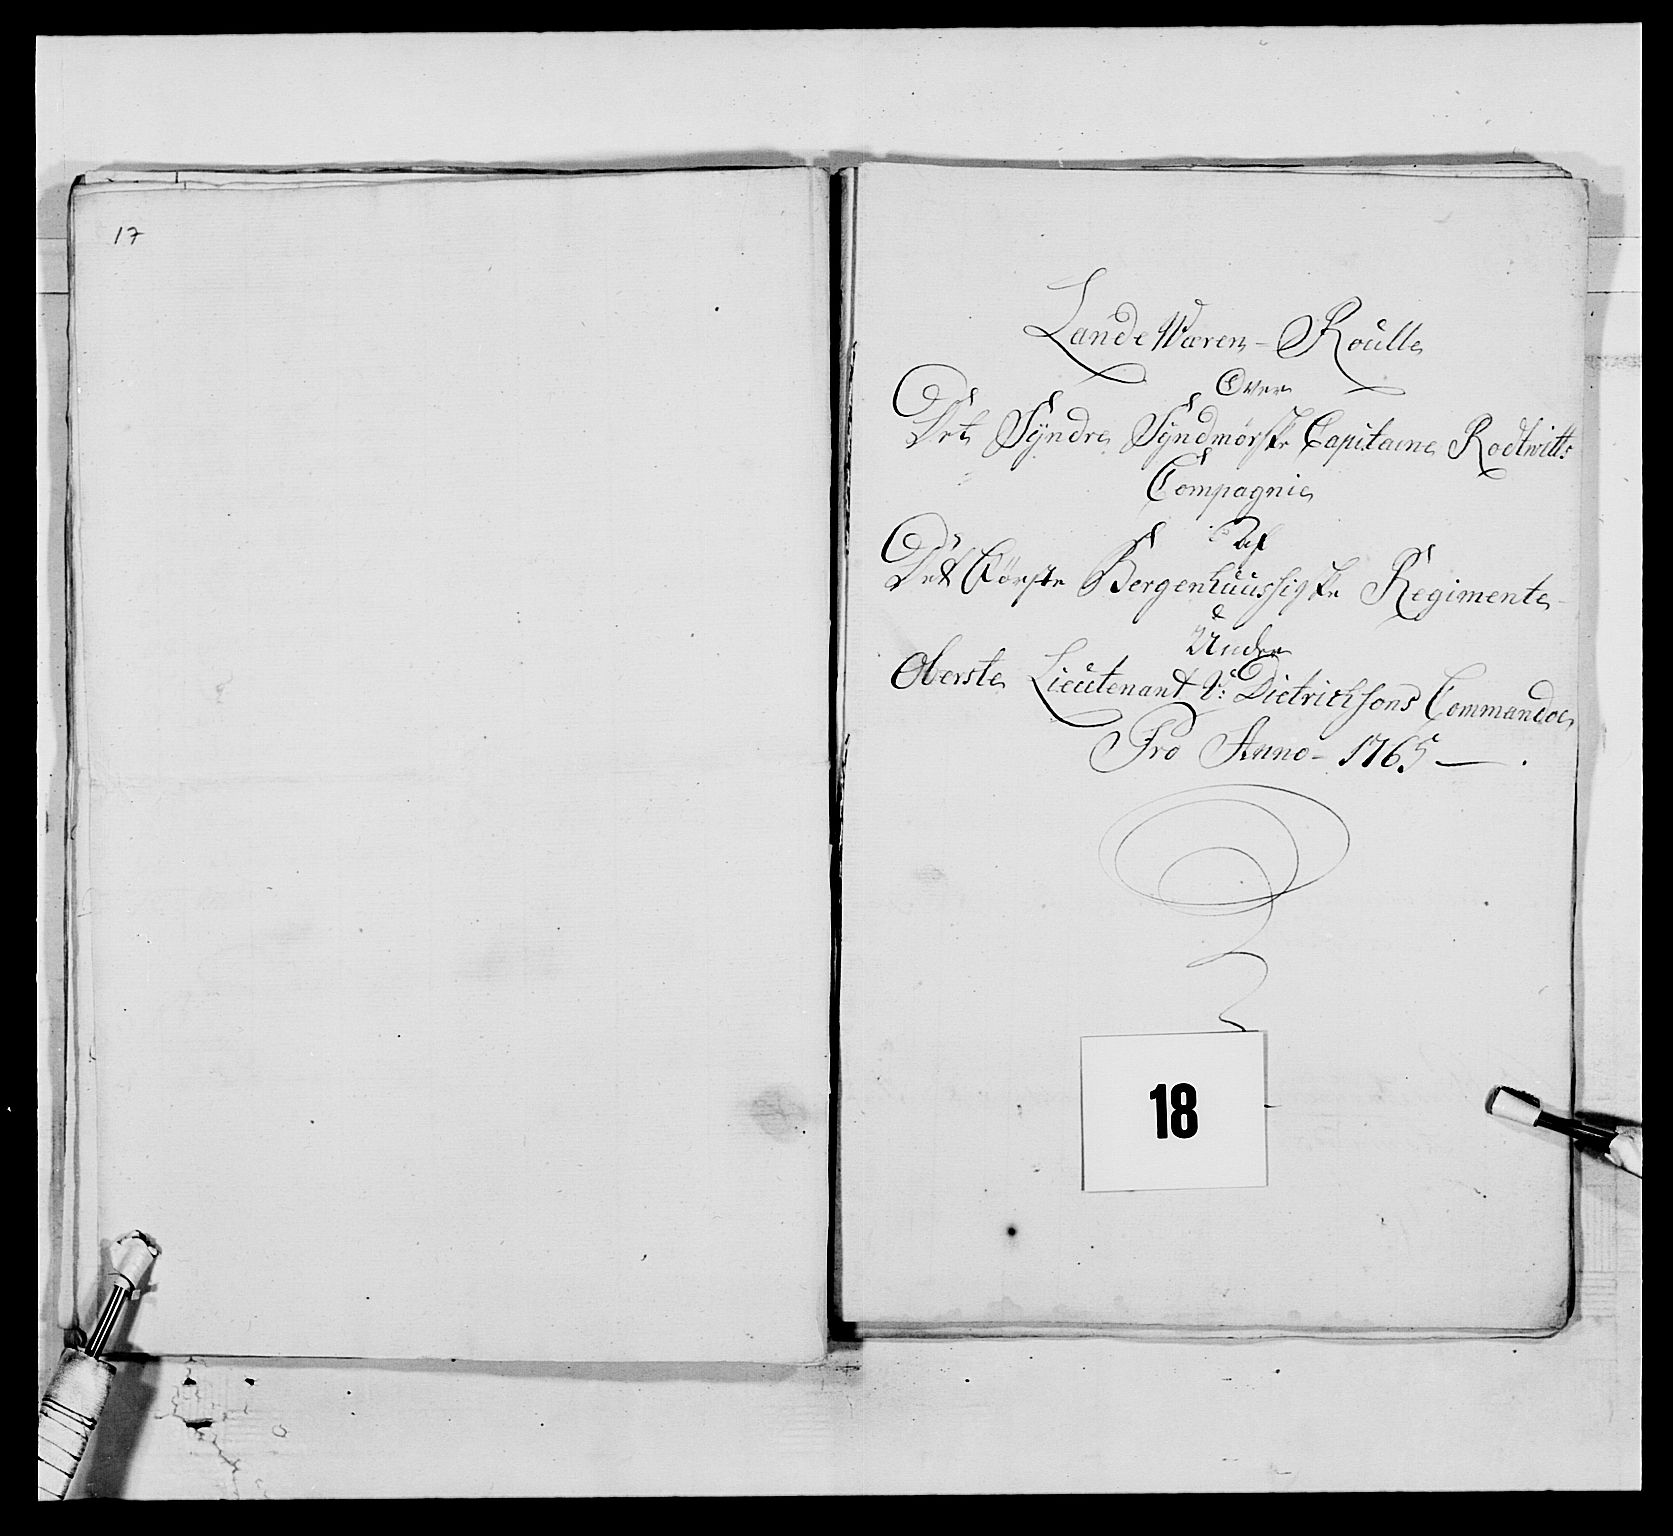 17
Lande Wæren - Roulle
Over
Det Syndre Syndmørske Capitaine Rodtwitts
Compagnie
Af
Det Første Bergenhuusiske Regimente
Under
Oberste Lieutenant V: Dietrichsons Commando
Pro Anno - 1765 — .
18